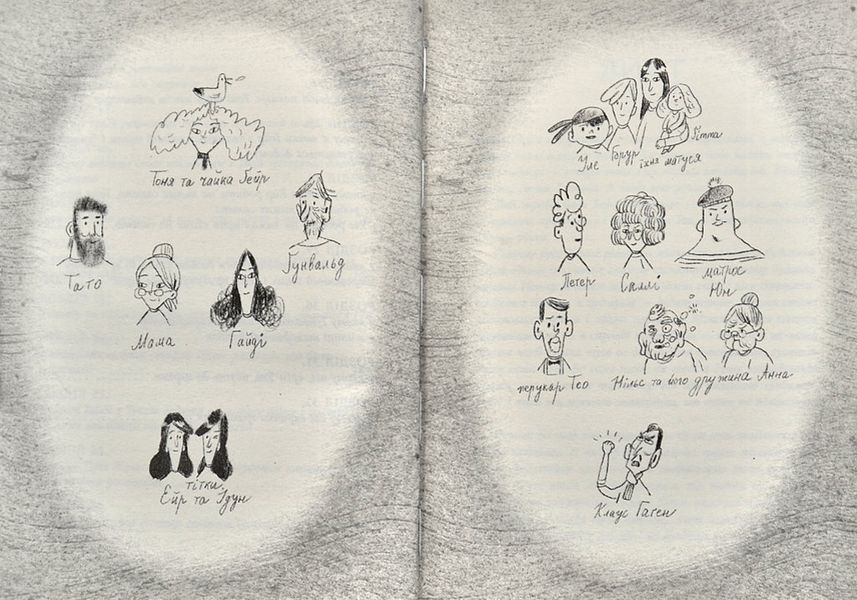 Тоня та чайка Гейр
Тато
Гунвальд
Мама
Гайді
тітки
Ейр та Ідун
Уле
Брур
їхня матуся
Гітта
Петер
Саллі
матрос
Юн
перукар Тео
Нільс та його дружина Анна
Клаус Гаген